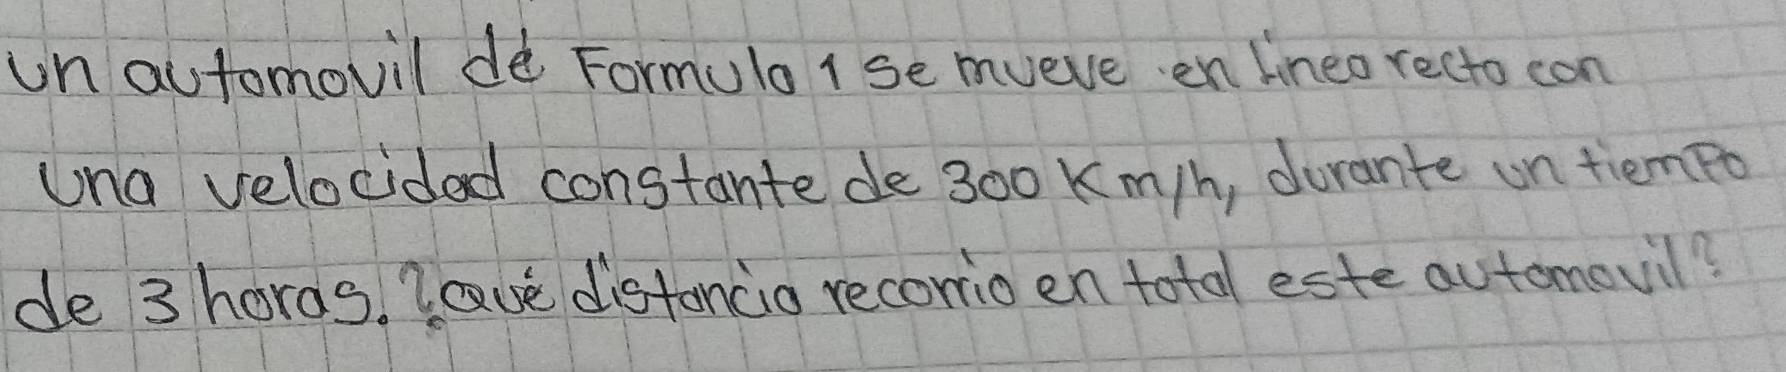 un automovil de Formula 1 se mueve en linea recta con
una velocidad constante de 300 Km/h, durante un tiempo
de 3 horas. ¿Qué distancia recorrio en total este automovil?